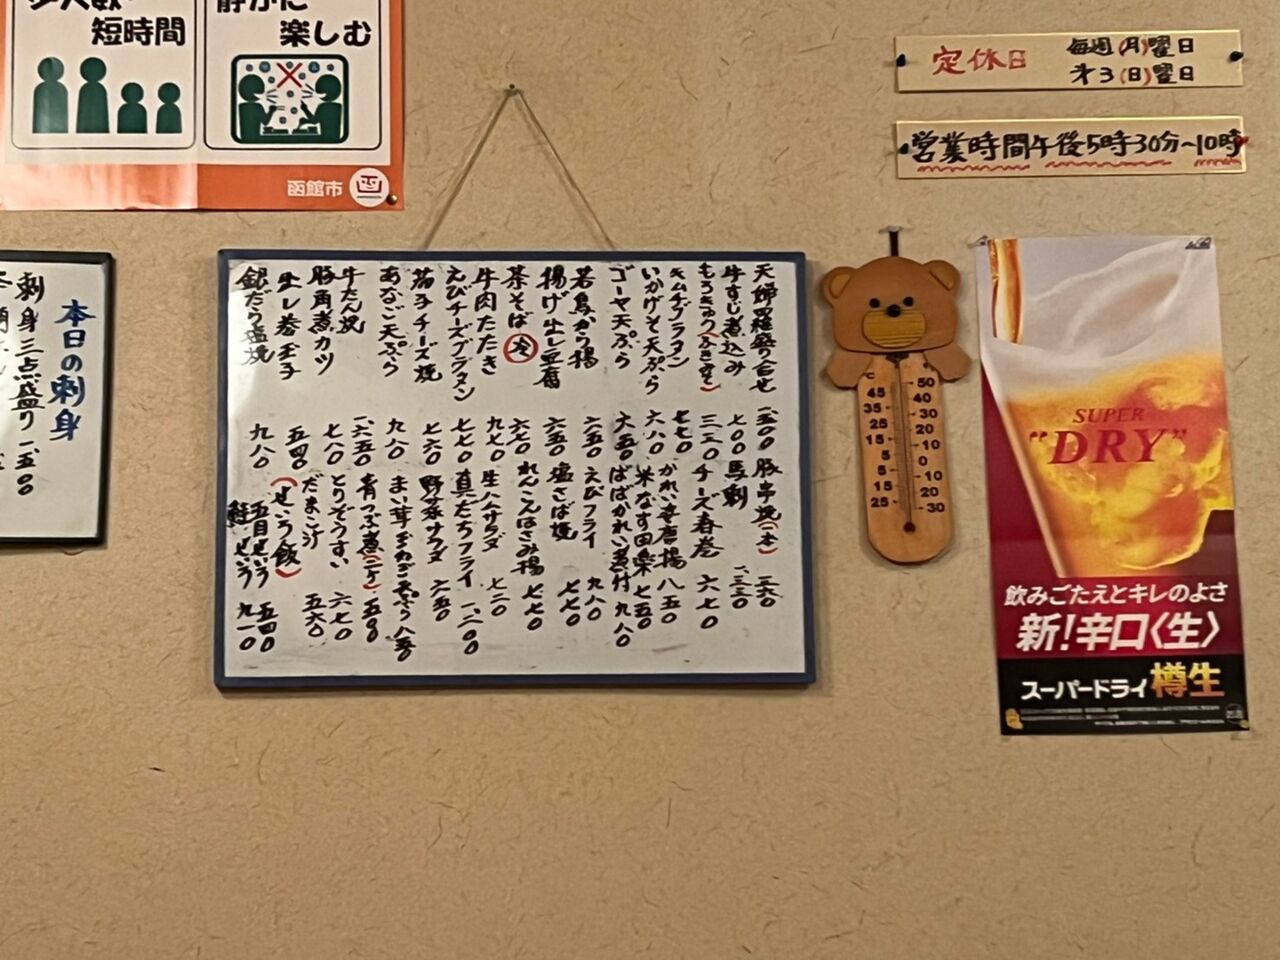 短時間
静かに
楽しむ
函館市
定休日
毎週(月)曜日
才3(日)曜日
営業時間午後5時30分~10時
本日の刺身
刺身三点盛り 一、五〇〇
天婦羅盛り合せ 一、五〇〇
牛すじ煮込み 七〇〇
もろきゅう 三三〇
キムチグラタン 七七〇
いかげそ天ぷら 六八〇
ゴーヤ天ぷら 六五〇
若鳥から揚 六五〇
揚げ出し豆腐 六五〇
茶そば 冷 六七〇
牛肉たたき 九七〇
えびチーズグラタン 七七〇
茄子チーズ焼 七六〇
あなご天ぷら 九八〇
牛たん焼 一、六五〇
豚角煮カツ 七八〇
出し巻玉子 五四〇
銀だら塩焼 九八〇
豚串焼(一本) 三六〇
馬刺 一、三三〇
チーズ春巻 六七〇
かれい唐揚 八五〇
米なす田楽 七五〇
ばばがれい煮付 九八〇
えびフライ 九八〇
塩さば焼 七七〇
れんこんはさみ揚 七七〇
生ハムサラダ 七二〇
真だちフライ 一、二〇〇
野菜サラダ 六五〇
まい茸 天ぷら 八五〇
青つぶ煮(二ケ) 五〇〇
とりぞうすい 六七〇
だまこ汁 五六〇
(ぞうすい飯)
五目ぞうすい 五四〇
鮭ぞうすい 九一〇
℃
45
35
25
15
5
5
15
25
50
40
30
20
10
0
10
20
30
SUPER
"DRY"
飲みごたえとキレのよさ
新!辛口〈生〉
スーパードライ 樽生